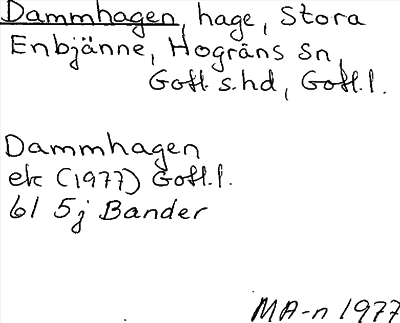 Dammhagen, hage, Stora
Enbjänne, Hogräns sn,
Gotl. s.hd, Gotl.l.
Dammhagen
ek (1977) Gotl.l.
6I 5j Bander
MA-n 1977